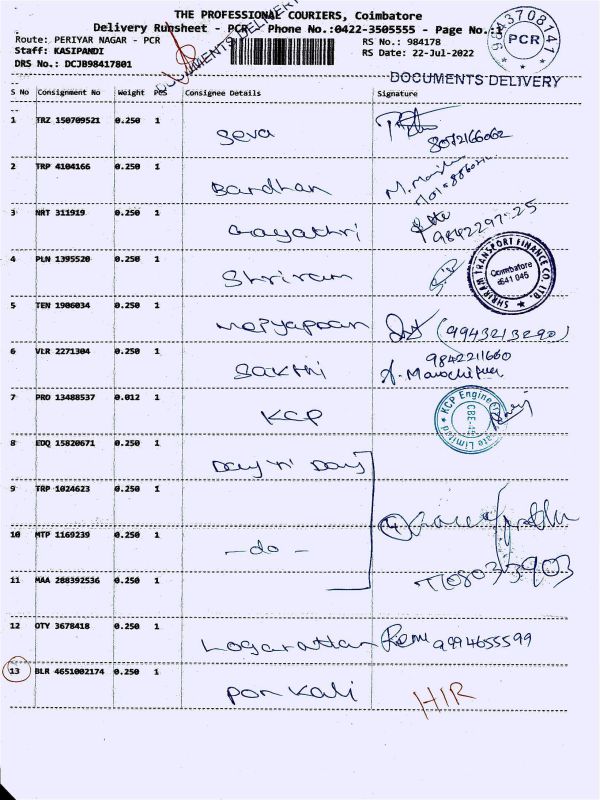 THE PROFESSIONAL COURIERS, Coimbatore
Delivery Runsheet - PCR Phone No.:0422-3505555 - Page No.:1
Route: PERIYAR NAGAR - PCR RS No.: 984178
Staff: KASIPANDI RS Date: 22-Jul-2022
DRS No.: DCJB98417801
DOCUMENTS DELIVERY
9843708141
PCR
DOCUMENTS DELIVERY
S No Consignment No Weight Pcs Consignee Details Signature
1 TRZ 150709521 0.250 1 Seva
2 TRP 4104166 0.250 1 Bardhan
3 NRT 311919 0.250 1 Gayathri
4 PLN 1395520 0.250 1 Shriram
SHRIRAM TRANSPORT FINANCE CO. LTD.
Coimbatore
641 045
5 TEN 1906034 0.250 1 Meiyappan (9943213290)
6 VLR 2271304 0.250 1 Sakthi 9842211660
7 PRO 13488537 0.012 1 KCP
KCP Engine
8 EDQ 15820671 0.250 1 Day n Day
9 TRP 1024623 0.250 1
10 MTP 1169239 0.250 1 - do - 4
11 MAA 288392536 0.250 1
12 OTY 3678418 0.250 1 Logarattan 9994655599
13 BLR 4651002174 0.250 1 Pon Kali HIR